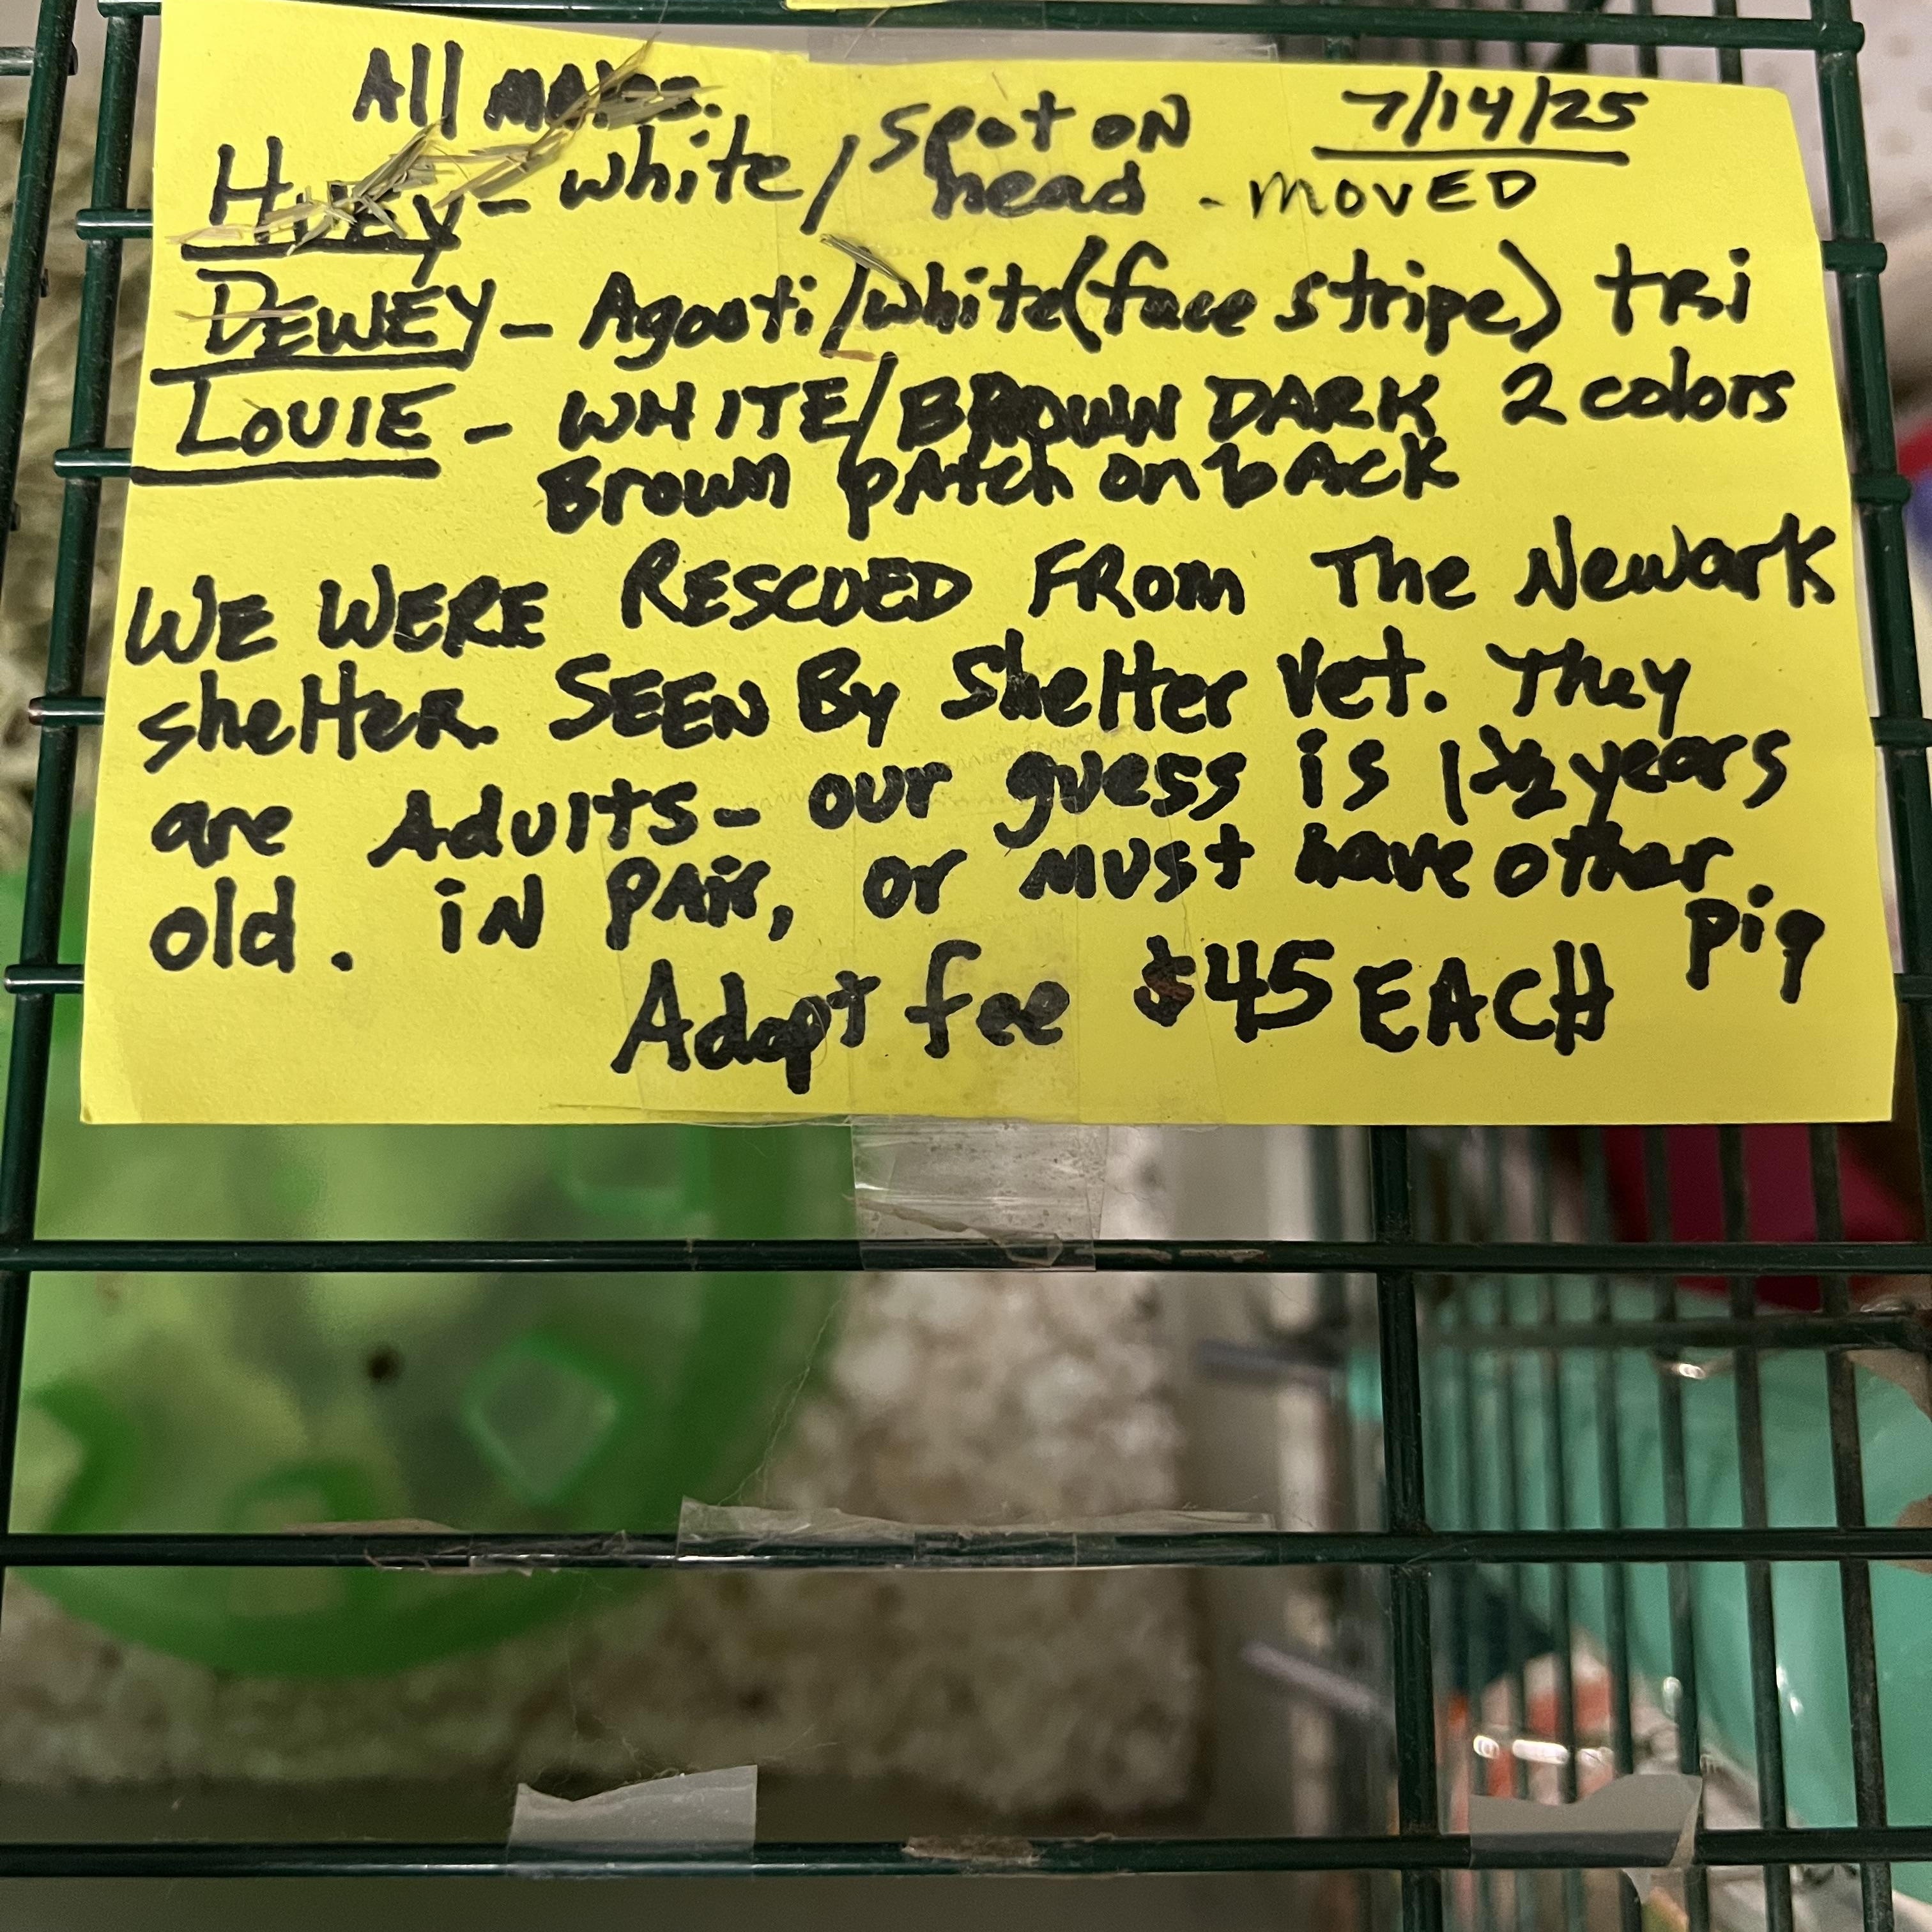 All males.
7/14/25
Huey - white / spot on head - MOVED
DEWEY - Agooti / white (face stripe) tRi
LOUIE - WHITE / BROWN DARK 2 colors
Brown pAtch on bACK
WE WERE RESCUED FRom The Newark
shelter. SEEN By Shelter Vet. They
are Adults - our guess is 1 1/2 years
old. iN pAir, or must have other pig.
Adopt fee $45 EACH